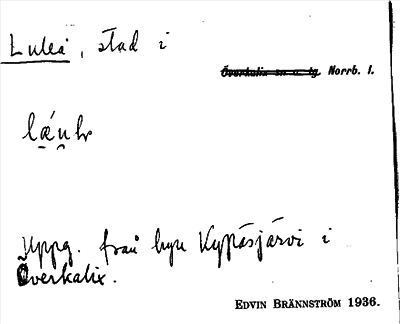 Luleå, stad i
Överkalix sn o. tg Norrb. l.
lǽu̯lι
Uppg. från byn Kypäsjärvi i
Överkalix.
EDVIN BRÄNNSTRÖM 1936.